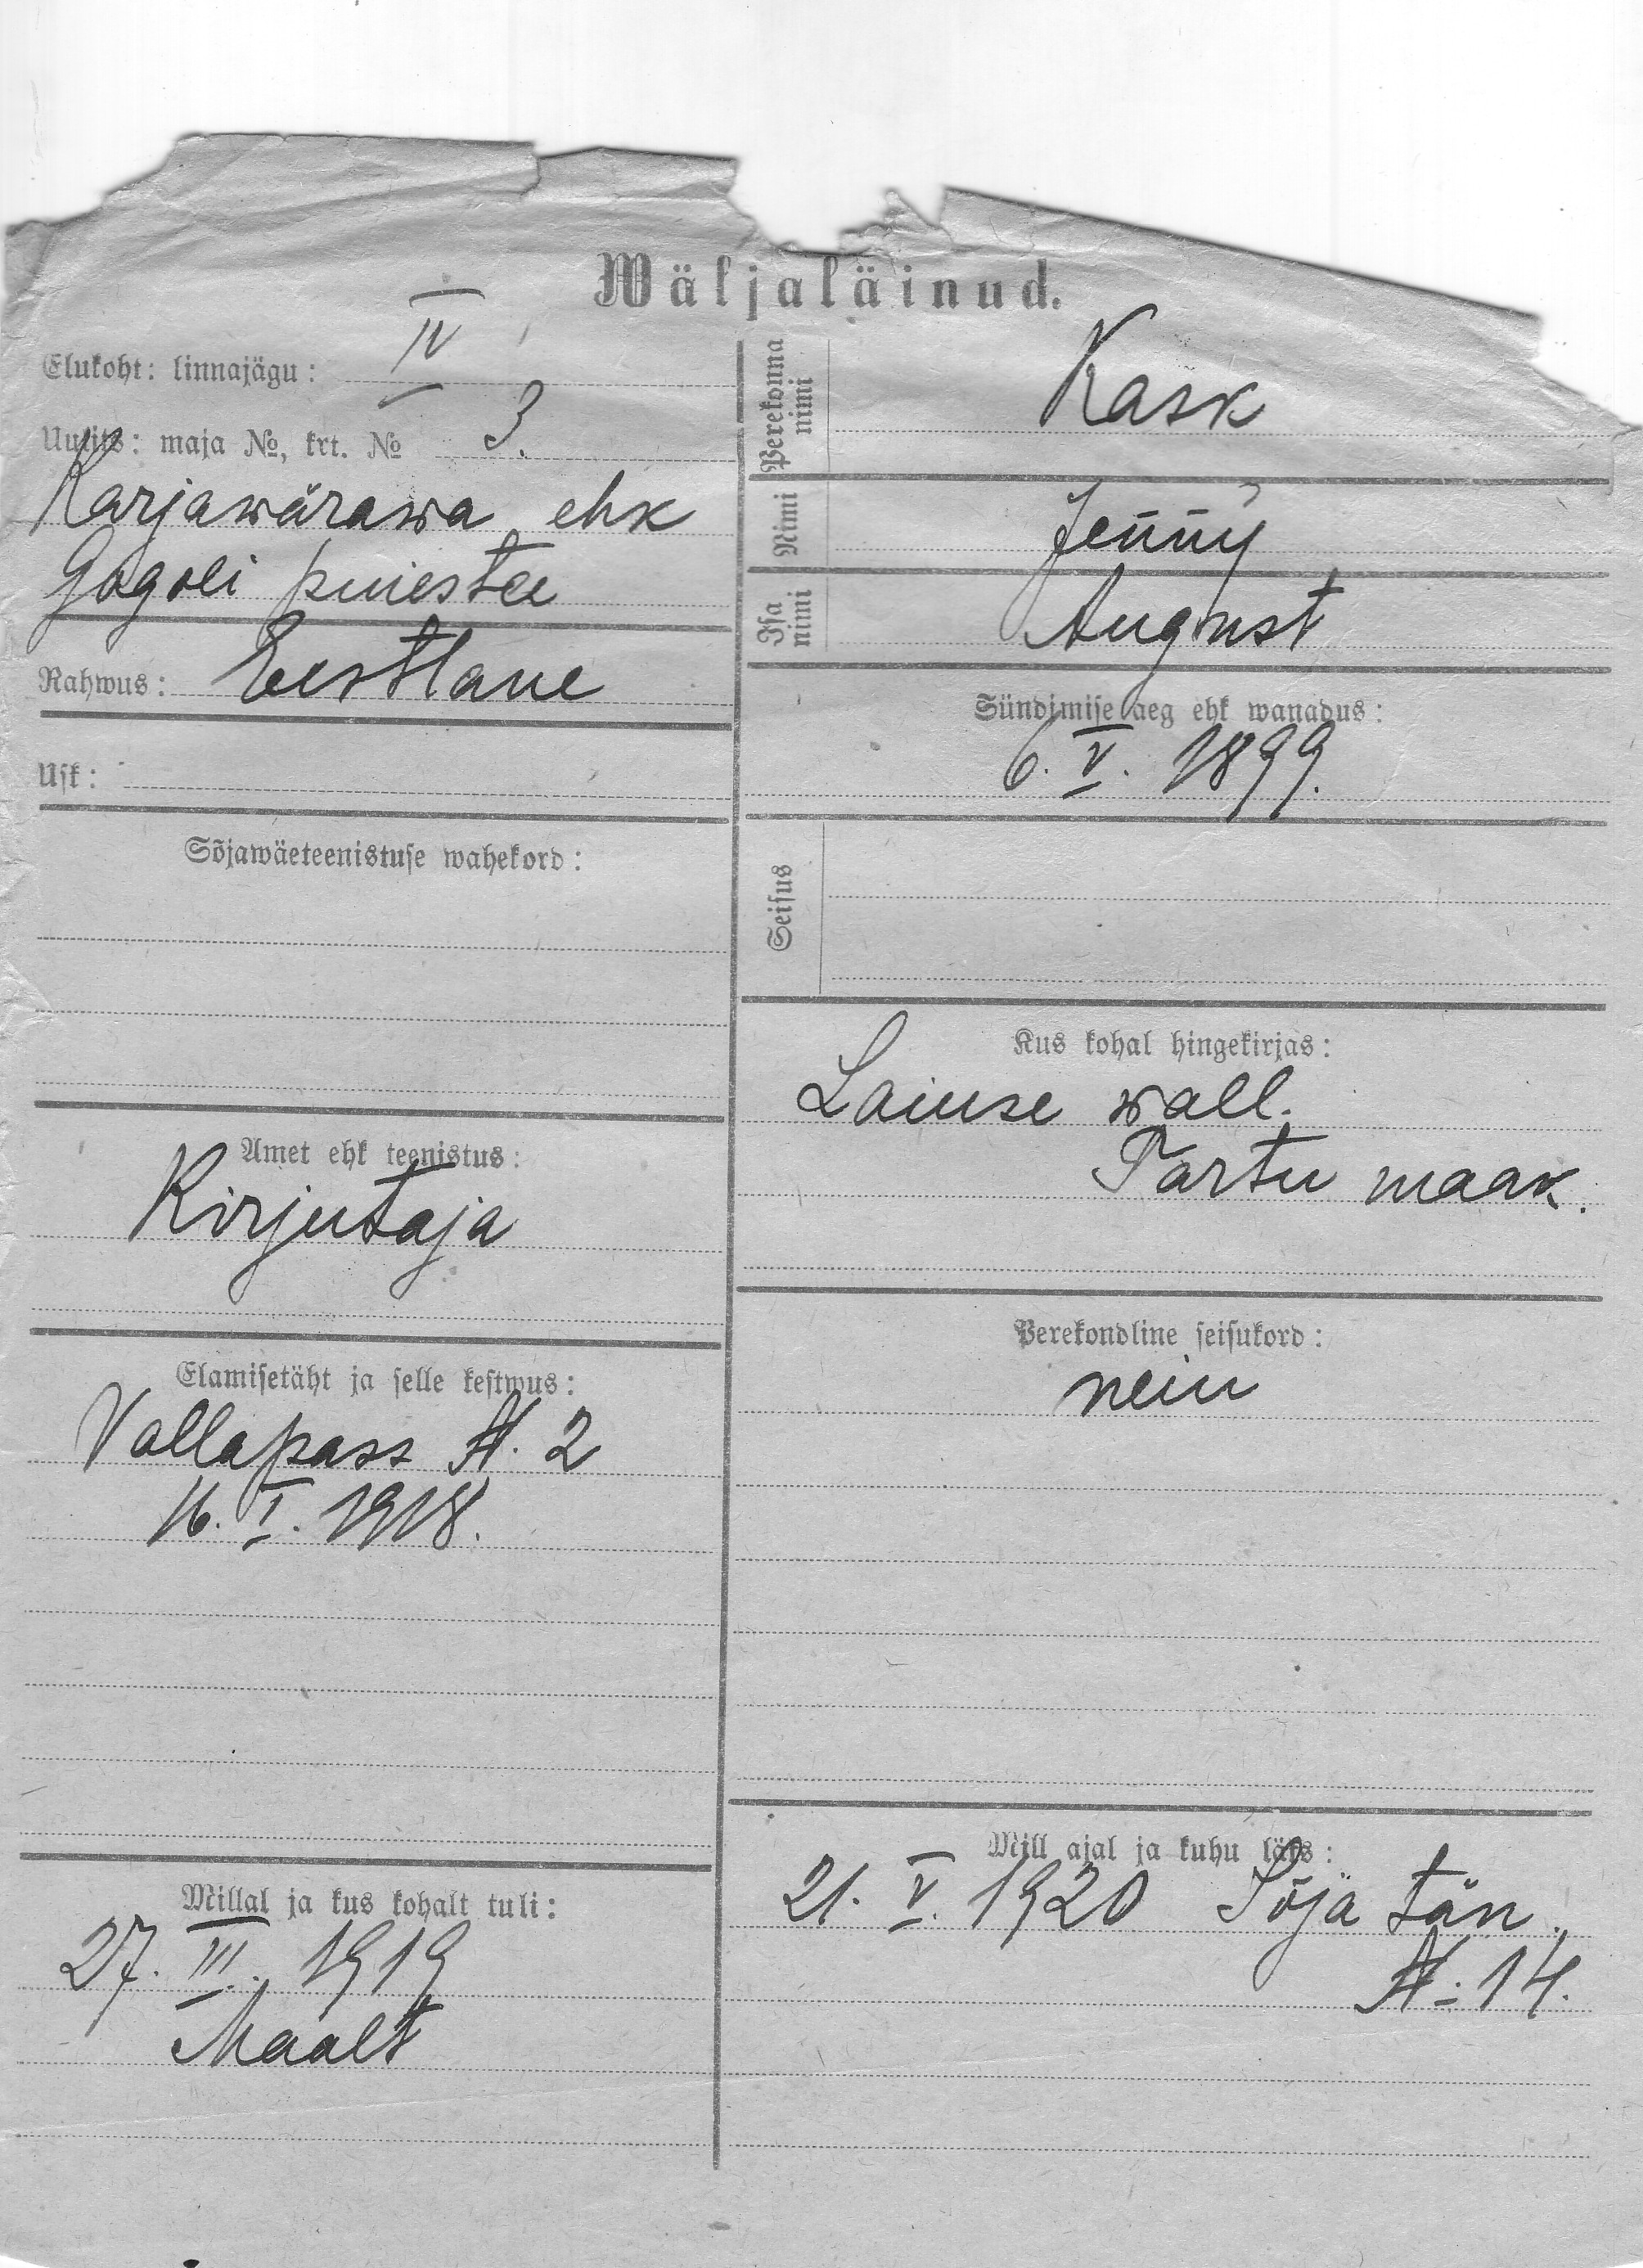 Wäljaläinud.
Elukoht: linnajägu: IV
Uulits: maja №, krt. № 3.
Karjawärawa ehk
Gogoli puiestee
Rahwus: Eestlane
Usk:
Sõjawäeteenistuse wahekord:
Amet ehk teenistus:
Kirjutaja
Elamisetäht ja selle kestwus:
Vallapass №. 2
16. I. 1918.
Millal ja kus kohalt tuli:
27. III. 1919
Maalt
Perekonna nimi Kask
Nimi Jenny
Isa nimi August
Sündimise aeg ehk wanadus:
6. V. 1899.
Seisus
Kus kohal hingekirjas:
Laiuse wall.
Tartu maak.
Perekondline seisukord:
neiu
Mill ajal ja kuhu läks:
21. V. 1920 Sõja tän.
№. 14.